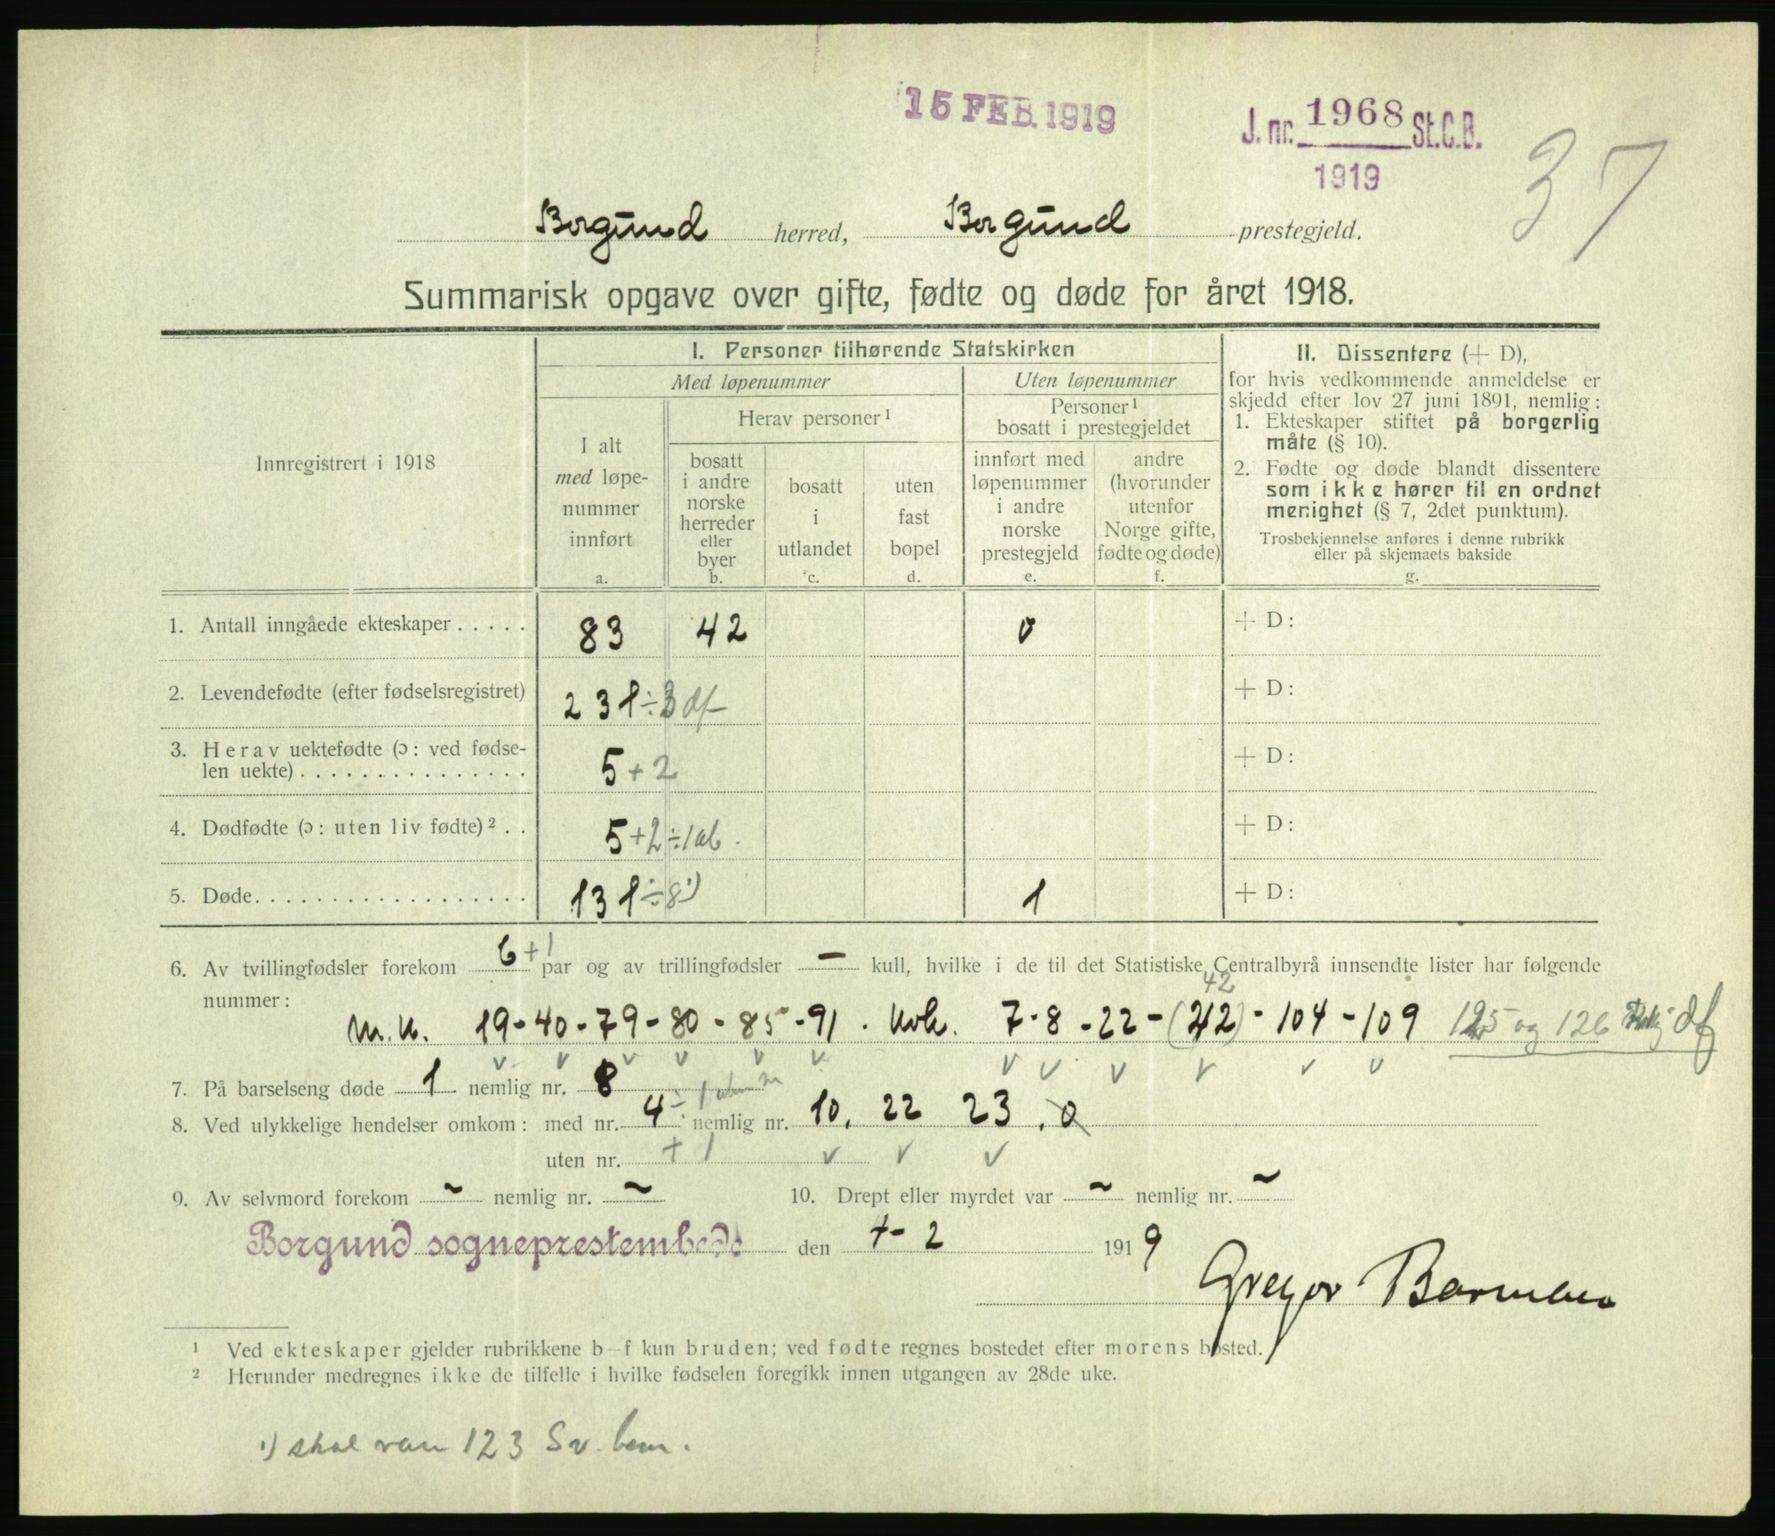 15 FEB. 1919
J. nr. 1968 St.C.B.
1919
37
Borgund herred, Borgund prestegjeld.
Summarisk opgave over gifte, fødte og døde for året 1918.
Innregistrert i 1918
I. Personer tilhørende Statskirken
Med løpenummer
Uten løpenummer
I alt
med løpe-
nummer
innført
a.
Herav personer ¹
bosatt
i andre
norske
herreder
eller
byer
b.
bosatt
i
utlandet
c.
uten
fast
bopel
d.
Personer ¹
bosatt i prestegjeldet
innført med
løpenummer
i andre
norske
prestegjeld
e.
andre
(hvorunder
utenfor
Norge gifte,
fødte og døde)
f.
II. Dissentere (+ D),
for hvis vedkommende anmeldelse er
skjedd efter lov 27 juni 1891, nemlig:
1. Ekteskaper stiftet på borgerlig
måte (§ 10).
2. Fødte og døde blandt dissentere
som ikke hører til en ordnet
menighet (§ 7, 2det punktum).
Trosbekjennelse anføres i denne rubrikk
eller på skjemaets bakside
g.
1. Antall inngåede ekteskaper . . . . . 83 42 0 + D:
2. Levendefødte (efter fødselsregistret) 231 ÷ 3 df + D:
3. Herav uektefødte (ɔ: ved fødse-
len uekte) . . . . . . . . . . . . . . . 5 + 2 + D:
4. Dødfødte (ɔ: uten liv fødte) ² . . 5 + 2 ÷ 1 ab. + D:
5. Døde. . . . . . . . . . . . . . . . . . 131 ÷ 8 ¹) 1 + D:
6. Av tvillingfødsler forekom 6 + 1 par og av trillingfødsler – kull, hvilke i de til det Statistiske Centralbyrå innsendte lister har følgende
42
nummer: M.k. 19 - 40 - 79 - 80 - 85 - 91 . Kvk. 7 - 8 - 22 - (212) - 104 - 109 125 og 126 df
7. På barselseng døde 1 nemlig nr. 8
8. Ved ulykkelige hendelser omkom: med nr. 4 ÷ 1 nemlig nr. 10. 22 23 . 0
uten nr. + 1
9. Av selvmord forekom ~ nemlig nr. ~ 10. Drept eller myrdet var ~ nemlig nr. ~
Borgund sogneprestembede den 7 - 2 1919
Gregor Barmen
¹ Ved ekteskaper gjelder rubrikkene b–f kun bruden; ved fødte regnes bostedet efter morens bosted.
² Herunder medregnes ikke de tilfelle i hvilke fødselen foregikk innen utgangen av 28de uke.
¹) skal være 123 Sv. bem.